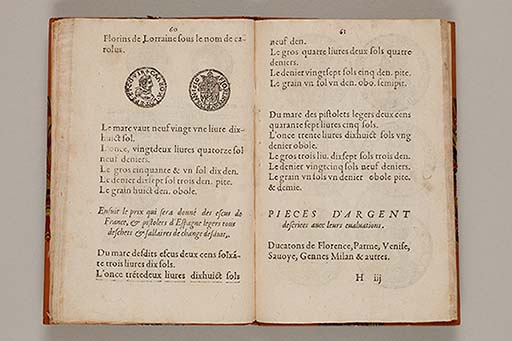 60
Florins de Lorraine sous le nom de ca-
rolus.
Le marc vaut neuf vingt vne liure dix-
huict sol.
L'once, vingtdeux liures quatorze sol
neuf deniers.
Le gros cinquante & vn sol dix den.
Le denier dixsept sol trois den. pite.
Le grain huict den. obole.
Ensuit le prix qui sera donné des escus de
France, & pistolets d'Espagne legers tous
deschets & sallaires de change desduits.
Du marc desdits escus deux cens soixã-
te trois liures dix sols.
L'once trétedeux liures dixhuict sols
61
neuf den.
Le gros quatre liures deux sols quatre
deniers.
Le denier vingtsept sols cinq den. pite.
Le grain vn sol vn den. obo. semipit.
Du marc des pistolets legers deux cens
quarante sept liures cinq sols.
L'once trente liures dixhuict sols vng
denier obole.
Le gros trois liu. dixsept sols trois den.
Le denier vingtcinq sols neuf deniers.
Le grain vn sols vn denier obole pite.
& demie.
PIECES D'ARGENT
descrites auec leurs eualuations.
Ducatons de Florence, Parme, Venise,
Sauoye, Gennes Milan & autres.
H iij